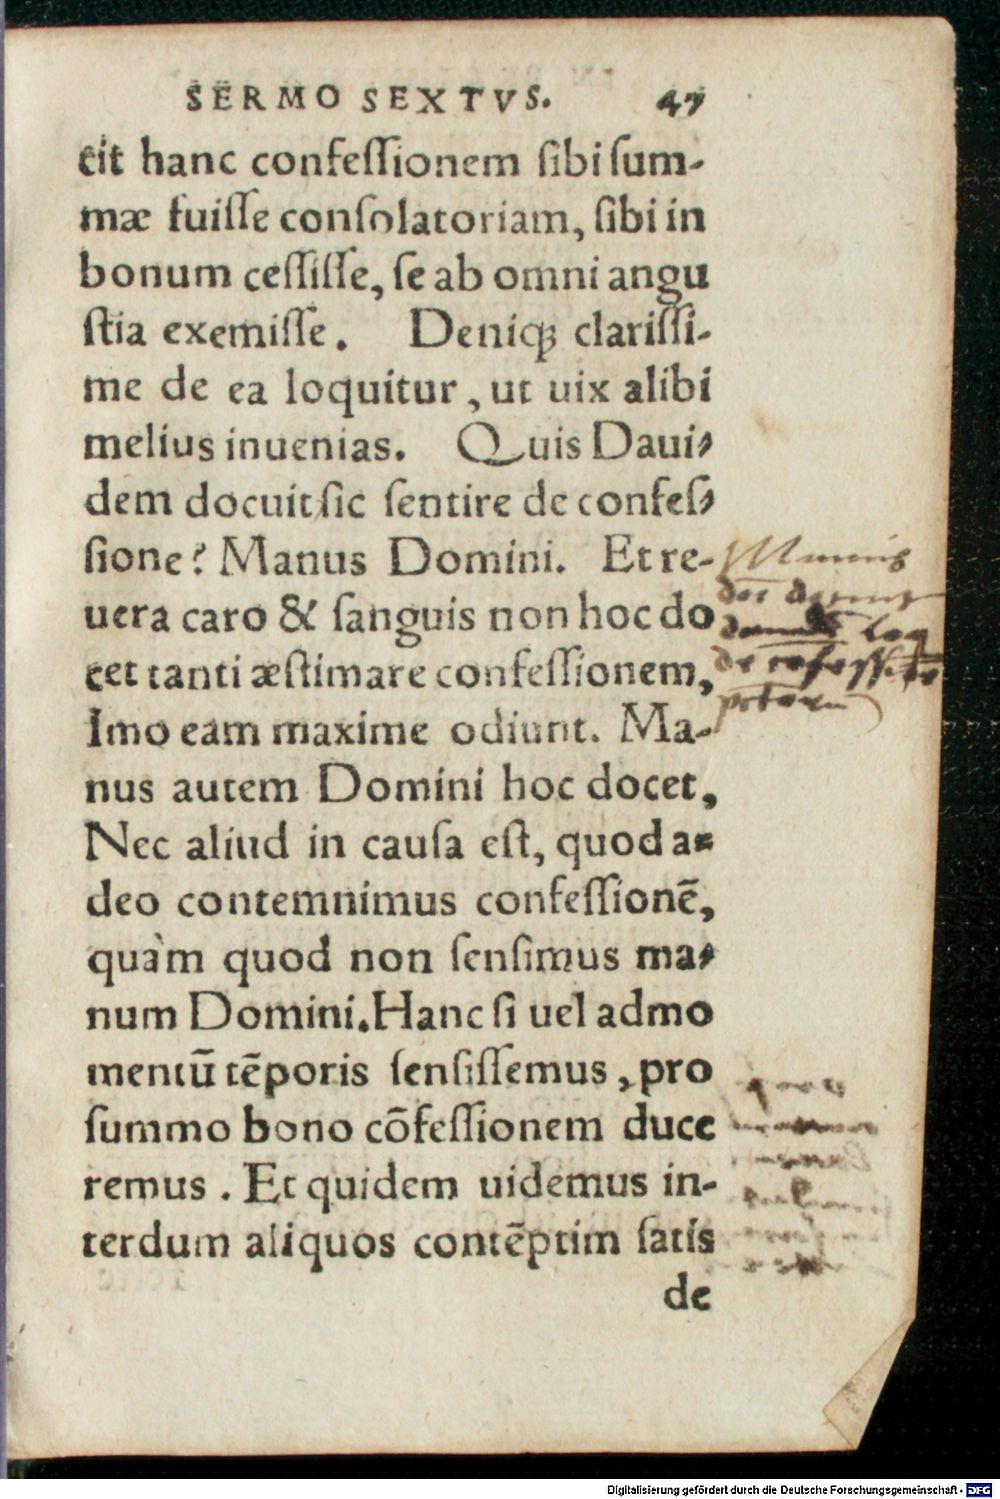 SERMO SEXTVS. 47
cit hanc confeſſionem ſibi ſum-
mæ fuiſſe conſolatoriam, ſibi in
bonum ceſſiſſe, ſe ab omni angu
ſtia exemiſſe. Deniqꝫ clariſſi-
me de ea loquitur, ut uix alibi
melius inuenias. Quis Daui-
dem docuit ſic ſentire de confeſ-
ſione? Manus Domini. Et re-
uera caro & ſanguis non hoc do
cet tanti æſtimare confeſſionem,
Imo eam maxime odiunt. Ma-
nus autem Domini hoc docet,
Nec aliud in cauſa eſt, quod a-
deo contemnimus confeſſionē,
quàm quod non ſenſimus ma-
num Domini. Hanc ſi uel admo
mentū tēporis ſenſiſſemus, pro
ſummo bono cōfeſſionem duce
remus. Et quidem uidemus in-
terdum aliquos contēptim ſatis
de
Digitalisierung gefördert durch die Deutsche Forschungsgemeinschaft - DFG